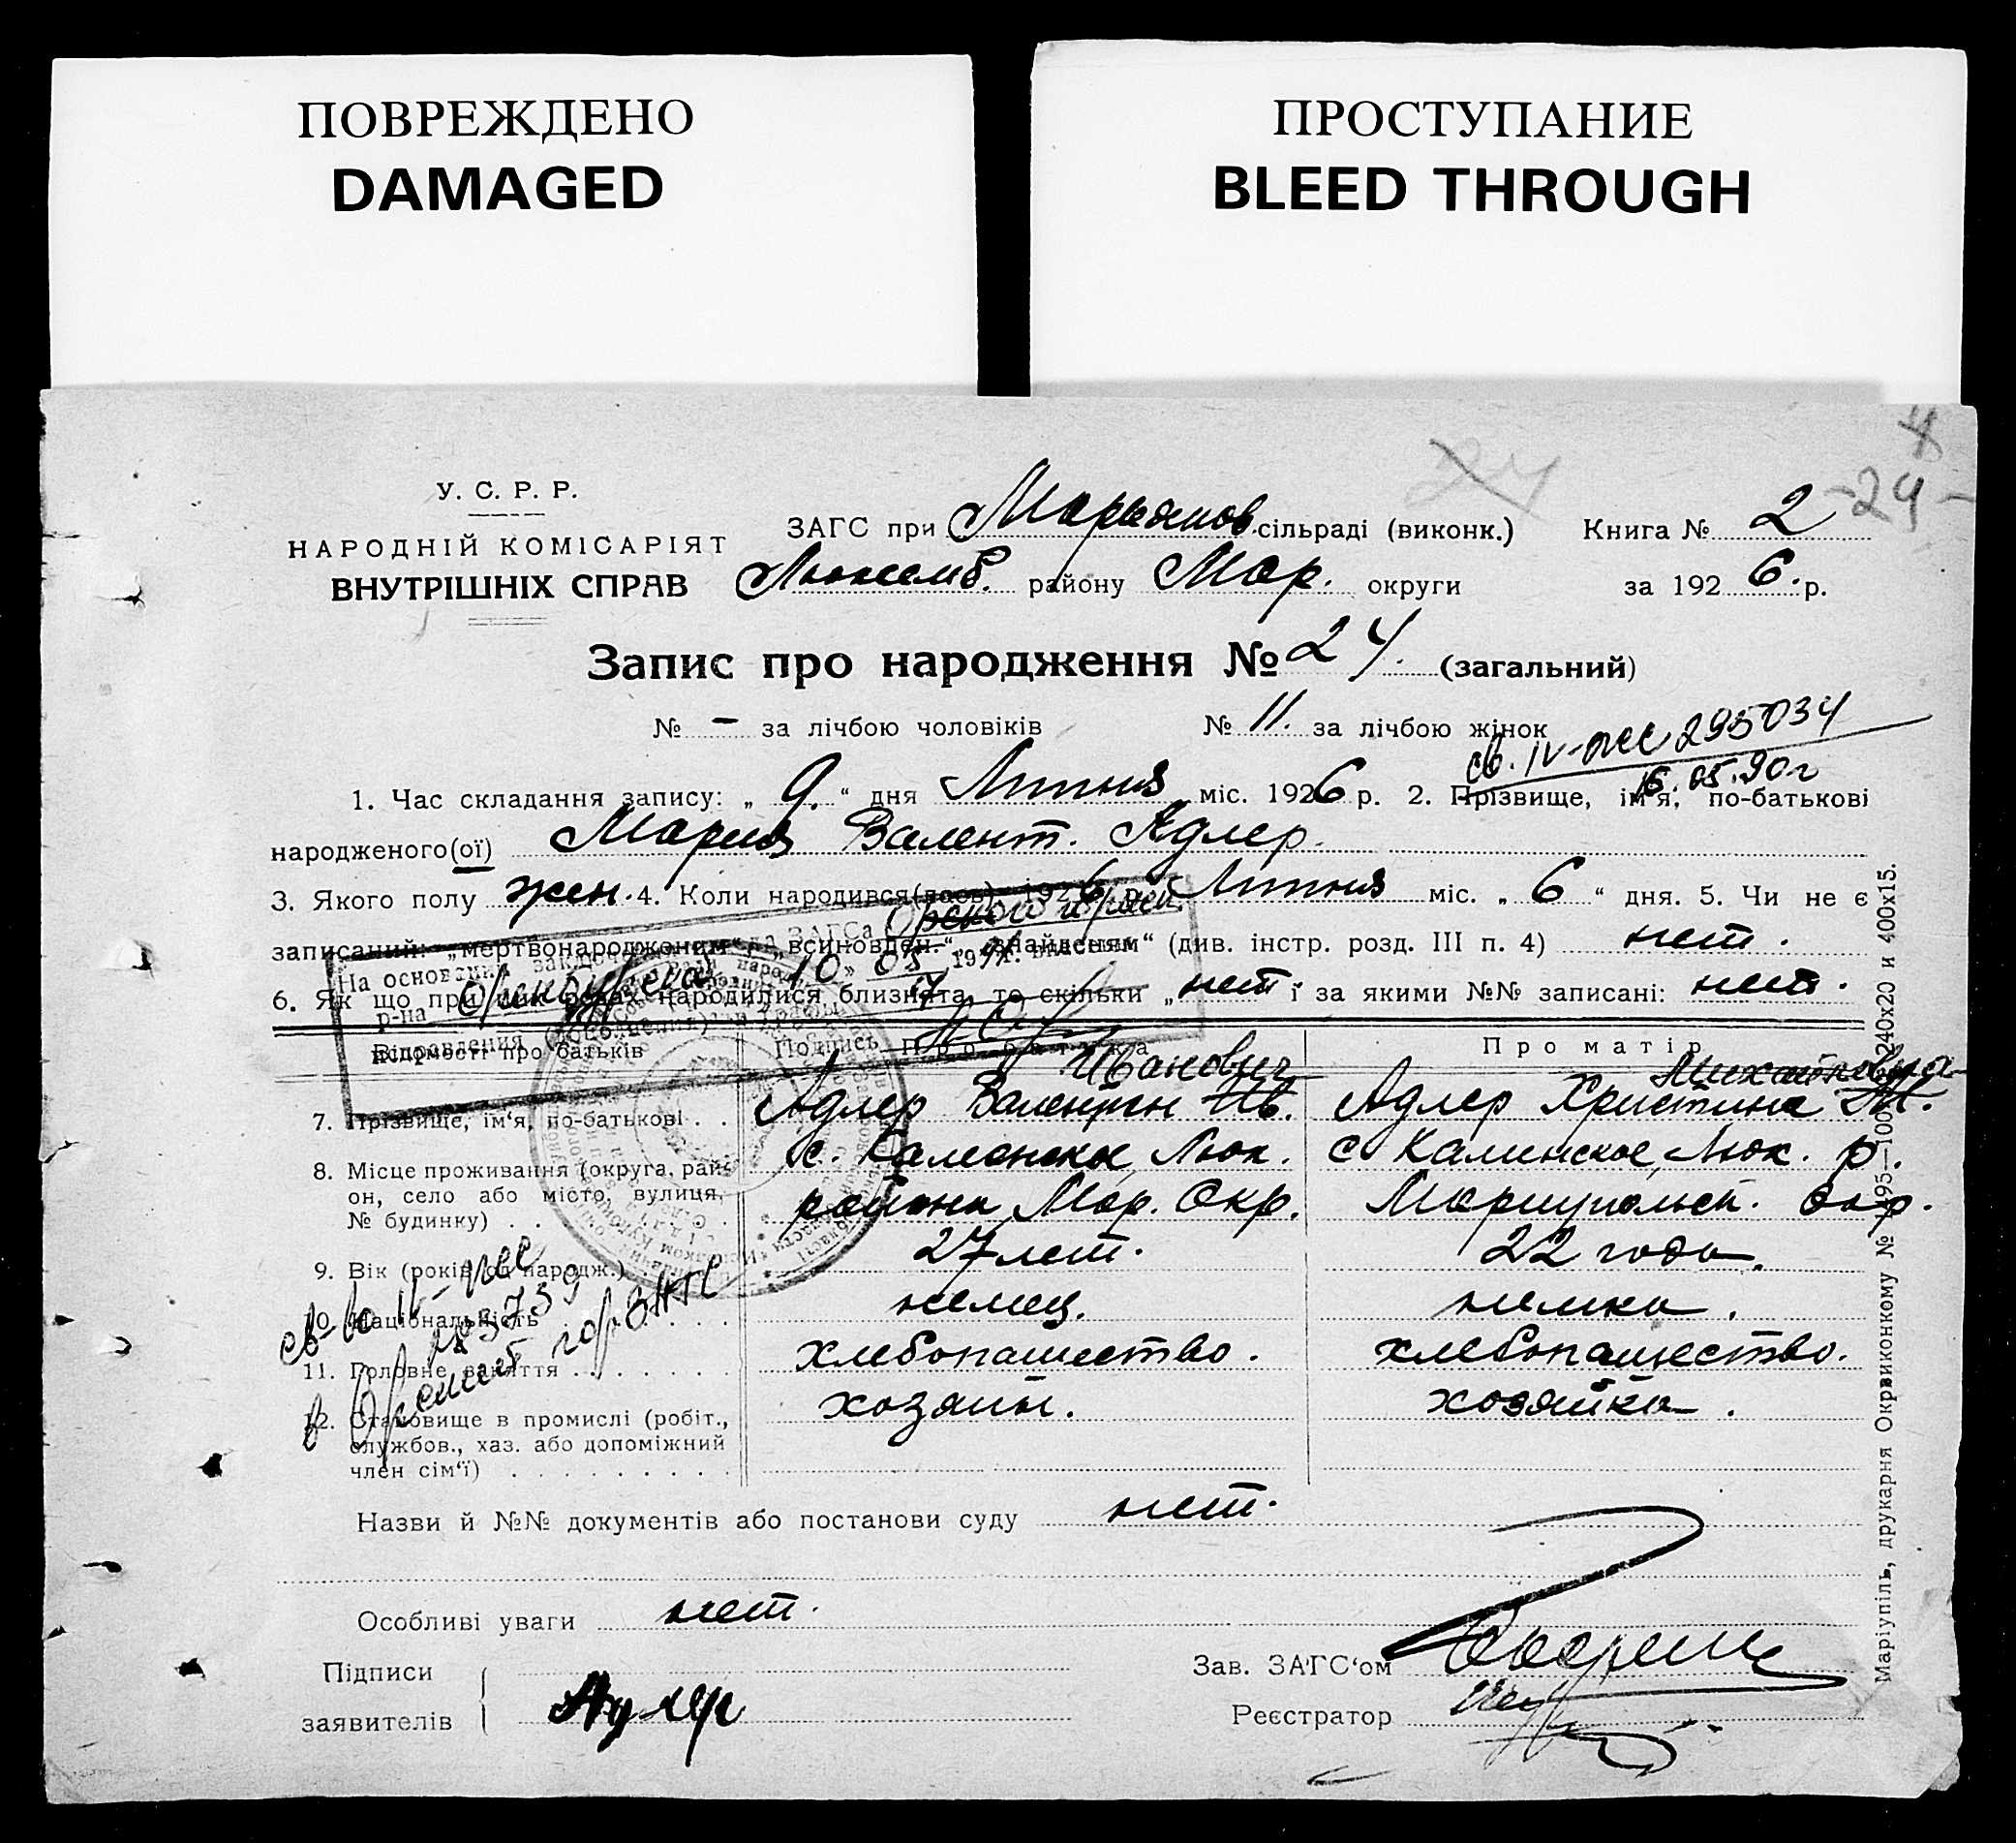 ПОВРЕЖДЕНО
DAMAGED
ПРОСТУПАНИЕ
BLEED THROUGH
24
-24-
У. С. Р. Р.
НАРОДНІЙ КОМІСАРІЯТ
ВНУТРІШНІХ СПРАВ
ЗАГС при Марьянов. сільраді (виконк.) Книга № 2
Люксемб. району Мар. округи за 1926. р.
Запис про народження № 24. (загальний)
№ - за лічбою чоловіків № 11. за лічбою жінок
295034
16.05.90г
1. Час складання запису: „ 9. “ дня Липня міс. 1926 р. 2. Прізвище, ім'я, по-батькові
народженого(ої) Мария Валент. Адлер.
3. Якого полу жен. 4. Коли народився(лась) 1926 р. Липня міс. „ 6 “ дня. 5. Чи не є
записаний: „мертвонародженим“, „всиновлен.“, „знайденим“ (див. інстр. розд. III п. 4) нет.
6. Як що при цих родах народилися близнята, то скільки „ нет і за якими №№ записані: нет.
На основании ЗАГСа
р-на
исправления
Подпись
Відомості про батьків
Про батька
Про матір
7. Прізвище, ім'я, по-батькові . .
Иванович
Адлер Валентин Ив.
Михайловна
Адлер Христина М.
8. Місце проживання (округа, рай-
он, село або місто, вулиця,
№ будинку) . .
с. Каменское Люк.
района Мар. Окр.
с Каминское Люк. р.
Мариупольск. окр.
9. Вік (років од народж.) .
27 лет.
22 года.
10. Національність
немец.
немка.
11. Головне заняття
хлебопашество.
хлебопашество.
12. Становище в промислі (робіт.,
службов., хаз. або допоміжний
член сім'ї)
хозяин.
хозяйка.
Назви й №№ документів або постанови суду нет.
Особливі уваги нет.
Підписи
заявителів
Адлер
Зав. ЗАГС'ом
Реєстратор
Маріупіль, друкарня Окрвиконкому № 240х20 и 400х15.